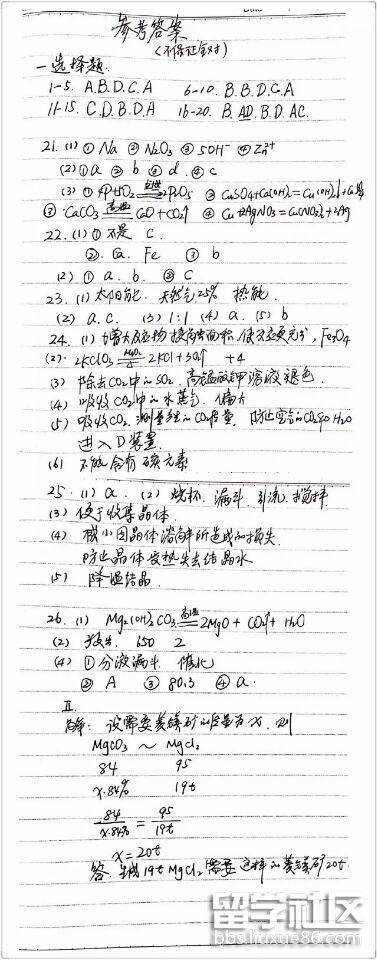 参考答案
(不保证全对)
一选择题
1-5. A.B.D.C.A 6-10. B.B.D.C.A
11-15. C.D.B.D.A 16-20. B.AD.B.D.AC.
21. (1) ① Na ② N₂O₃ ③ 5OH⁻ ④ Zn²⁺
(2) ① a ② b ③ d ④ c
(3) ① 4P+5O₂ 2P₂O₅ ② CuSO₄+Ca(OH)₂=Cu(OH)₂↓+
③ CaCO₃ 高温 CaO+CO₂↑ ④ Cu+2AgNO₃=Cu(NO₃)₂+2Ag
22. (1) ① 不是 C.
② Ca. Fe ③ b
(2) ① a. b. ② C
23. (1) 太阳能. 天然气 25% 热能.
(2) a.c. (3) 1:1 (4) a. (5) b
24. (1) 增大反应物接触面积,使反应更充分, Fe₃O₄
(2) 2KClO₃ MnO₂ △ 2KCl+3O₂↑ +4
(3) 除去CO₂中的SO₂. 高锰酸钾溶液褪色.
(4) 吸收CO₂中的水蒸气. 偏大
(5) 吸收CO₂, 测量生成的CO₂质量. 防止空气的CO₂和H₂O
进入D装置.
(6) 不能含有碳元素
25. (1) a. (2) 烧杯. 漏斗. 引流. 搅拌
(3) 便于收集晶体
(4) 减小因晶体溶解所造成的损失.
防止晶体受热失去结晶水
(5) 降温结晶.
26. (1) Mg₂(OH)₂CO₃ 高温 2MgO+CO₂↑+H₂O
(2) 650 2
(4) ① 分液漏斗. 催化
② A ③ 80.3 ④ a.
II.
解: 设需要菱镁矿的质量为x, 则
MgCO₃ ~ MgCl₂
84 95
x·84% 19t
84/x·84% = 95/19t
x=20t
答: 19t MgCl₂需要这样的菱镁矿20t.
留学社区
bbs.liuxue86.com